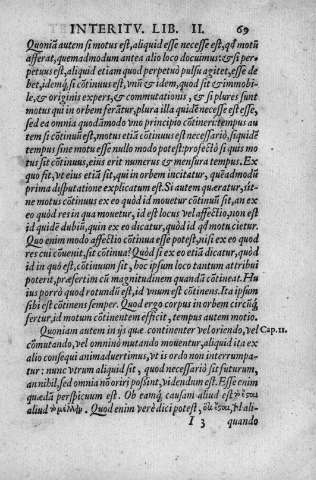 INTERITV. LIB. II. 69
Quoniã autem si motus est, aliquid esse necesse est, qd' motũ
afferat, quemadmodum antea alio loco docuimus: & si per-
petuus est, aliquid etiam quod perpetuò pulsu agitet, esse de
bet, idemq́, si cõtinuus est, vnũ & idem, quod sit & immobi-
le, & originis expers, & commutationis, & si plures sunt
motus qui in orbem ferãtur, plura illa quidẽ necesse est esse,
sed ea omnia quodãmodo vno principio cõtineri: tempus au
tem si cõtinuũ est, motus etiã cõtinuus est necessariò, siquidẽ
tempus sine motu esse nullo modo potest: profectò si quis mo
tus sit cõtinuus, eius erit numerus & mensura tempus. Ex
quo fit, vt eius etiã sit, qui in orbem incitatur, quẽadmodũ
prima disputatione explicatum est. Si autem quæratur, sit-
ne motus cõtinuus ex eo quòd id mouetur cõtinuũ sit, an ex
eo quòd res in qua mouetur, id est locus vel affectio, non est
id quidẽ dubiũ, quin ex eo dicatur, quòd id qd' motu cietur.
Quo enim modo affectio cõtinua esse potest, nisi ex eo quod
res cui euenit, sit cõtinua? Quòd si ex eo etiã dicatur, quòd
id in quo est, cõtinuum sit, hoc ipsum loco tantum attribui
poterit, præsertim cũ magnitudinem quandã cõtineat. Hu
ius porrò quod rotundũ est, id vnum est cõtinens. Ita ipsum
sibi est cõtinens semper. Quod ergo corpus in orbem circũq́,
fertur, id motum cõtinentem efficit, tempus autem motio.
Quoniam autem in ijs quæ continenter vel oriendo, vel Cap. 11.
cõmutando, vel omnino mutando mouentur, aliquid ita ex
alio consequi animaduertimus, vt is ordo non interrumpa-
tur: nunc vtrum aliquid sit, quod necessariò sit futurum,
an nihil, sed omnia nõ oriri possint, videndum est. Esse enim
quædã perspicuum est. Ob eamq́, causam aliud est τὸ ἔσται
aliud τὸ μέλλον. Quod enim verè dici potest, ὅτι ἔσται, id ali-
I 3 quando